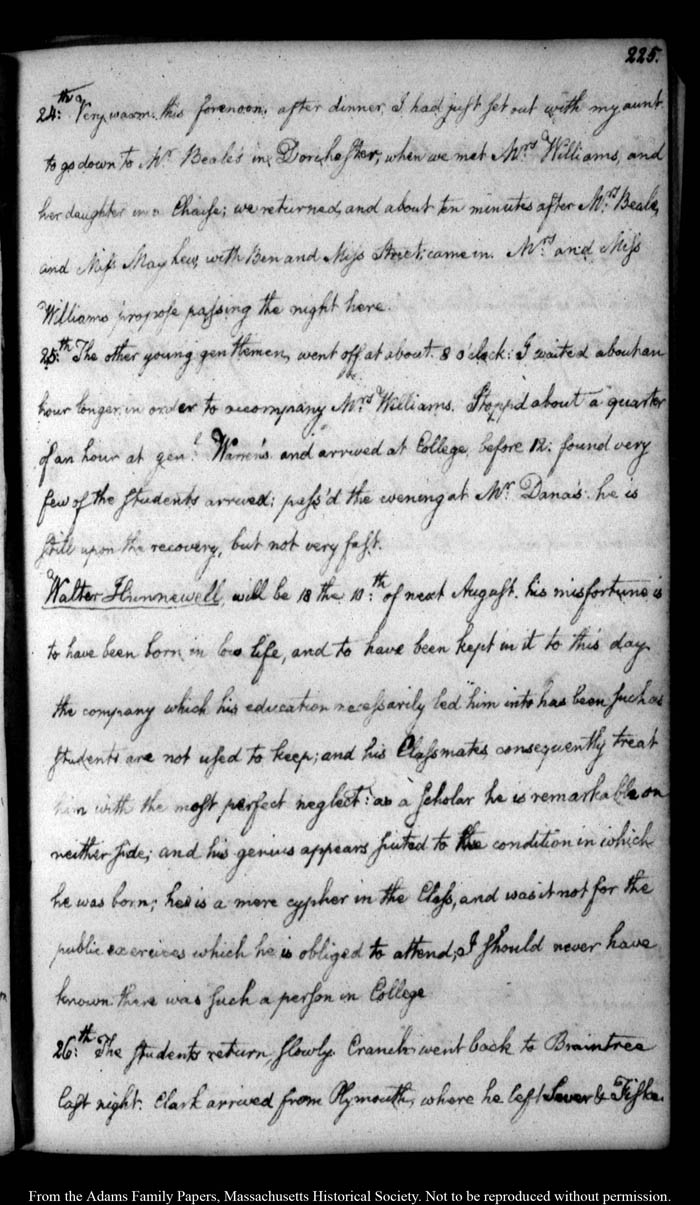 225.
24:th Very warm this forenoon; after dinner, I had just set out with my aunt
to go down to Mr. Beale's in Dorchester, when we met Mrs. Williams, and
her daughter in a Chaise; we returned, and about ten minutes after Mrs. Beale,
and Miss Mayhew, with Ben and Miss Street, came in. Mrs. and Miss
Williams propose passing the night here.
25:th The other young gentlemen, went off at about 8 o'clock: I waited about an
hour longer, in order to accompany Mrs. Williams. Stopp'd about a quarter
of an hour at genl. Warren's and arrived at College, before 12: found very
few of the students arrived; pass'd the evening at Mr. Dana's: he is
still upon the recovery, but not very fast.
Walter Hunnewell, will be 18 the 10:th of next August. his misfortune is
to have been born, in low life, and to have been kept in it to this day.
the company which his education necessarily led him into has been such as
students are not used to keep; and his Classmates consequently treat
him with the most perfect neglect: as a scholar he is remarkable on
neither side; and his genius appears suited to the condition in which
he was born; he is a mere cypher in the Class, and was it not for the
public exercices which he is obliged to attend, I should never have
known there was such a person in College
26:th The students return, slowly. Cranch went back to Braintree
last night. Clark arrived from Plymouth, where he left Sever & Fiske.
From the Adams Family Papers, Massachusetts Historical Society. Not to be reproduced without permission.